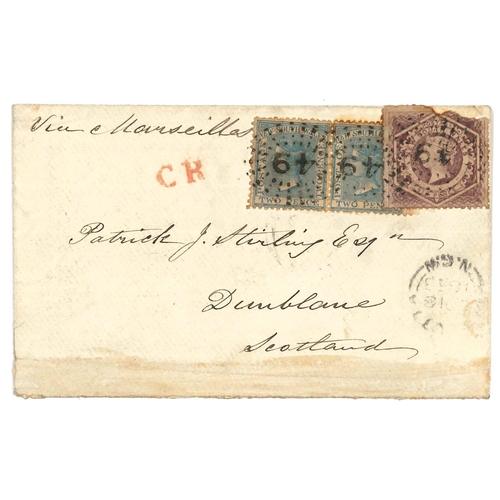 Via Marseilles
C R
49
49
49
TWO PENCE
TWO PEN
Patrick J. Stirling Esqr
Dunblane
Scotland
N.S.W